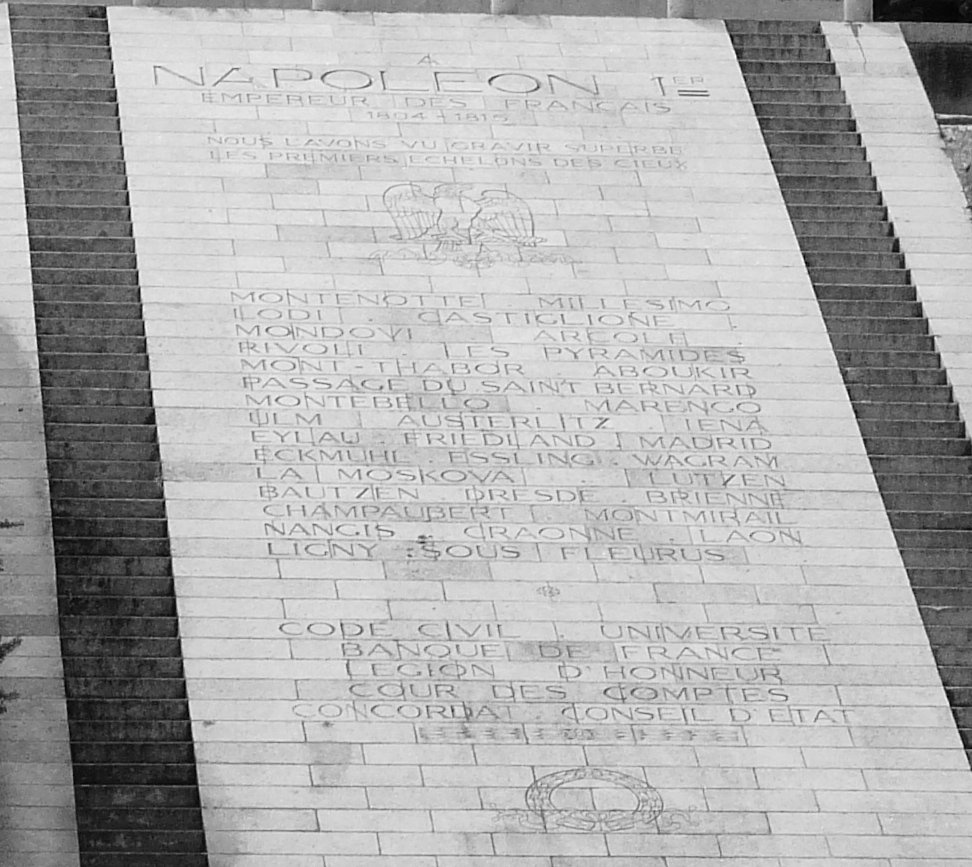 A
NAPOLEON 1ER
EMPEREUR DES FRANCAIS
1804 - 1815
NOUS L'AVONS VU GRAVIR SUPERBE
LES PREMIERS ECHELONS DES CIEUX
MONTENOTTE . MILLESIMO
LODI . CASTIGLIONE .
MONDOVI ARCOLE
RIVOLI . LES PYRAMIDES
MONT-THABOR . ABOUKIR
PASSAGE DU SAINT BERNARD
MONTEBELLO . MARENGO
ULM . AUSTERLITZ . IENA
EYLAU . FRIEDLAND . MADRID
ECKMUHL . ESSLING . WAGRAM
LA MOSKOVA . LUTZEN
BAUTZEN . DRESDE . BRIENNE
CHAMPAUBERT . MONTMIRAIL
NANGIS . CRAONNE . LAON
LIGNY . SOUS FLEURUS
CODE CIVIL . UNIVERSITE
BANQUE DE FRANCE
LEGION D'HONNEUR
COUR DES COMPTES
CONCORDAT . CONSEIL D'ETAT